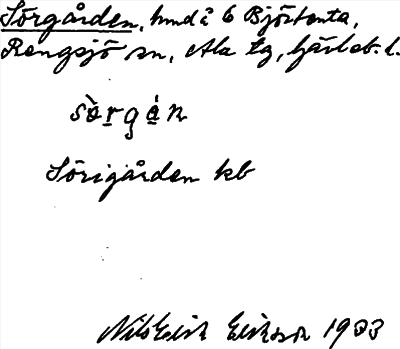 Sörgården, hmd å 6 Björtomta,
Rengsjö sn, Ala tg, Gävleb. l.
sòrgán
Sörigården kb
Nils Erik Erikson 1933